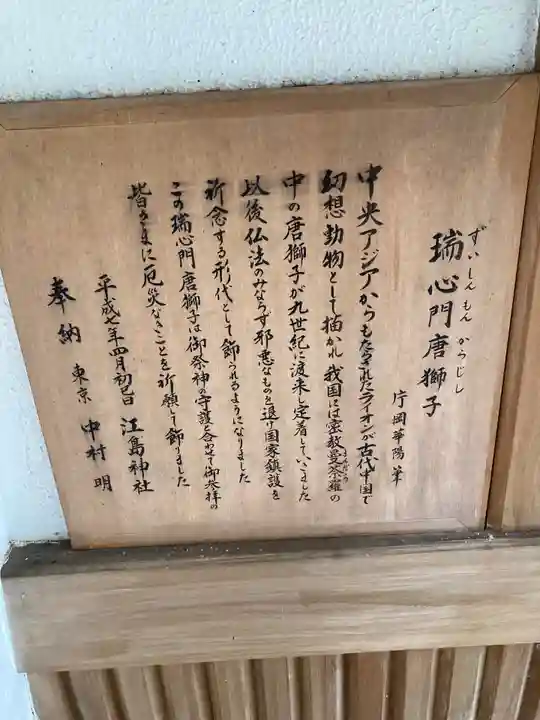 ずいしんもん からじし
瑞心門唐獅子
片岡華陽 筆
中央アジアからもたらされたライオンが古代中国で
幻想動物として描かれ我国には密教曼荼羅の
まんだら
中の唐獅子が九世紀に渡来し定着していきました
以後仏法のみならず邪悪なものを退け国家鎮護を
祈念する形代として飾られるようになりました
この瑞心門唐獅子は御祭神の守護と合せて御参拝の
皆さまに厄災なきことを祈願して飾りました
平成七年四月初巳 江島神社
奉納 東京 中村 明